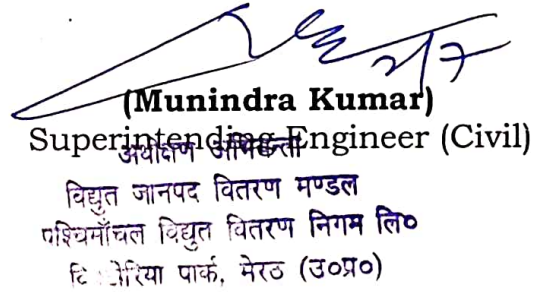 (Munindra Kumar)
Superintending Engineer (Civil)
अधीक्षण अभियन्ता
विद्युत जानपद वितरण मण्डल
पश्चिमाँचल विद्युत वितरण निगम लि०
पार्क, मेरठ (उ०प्र०)